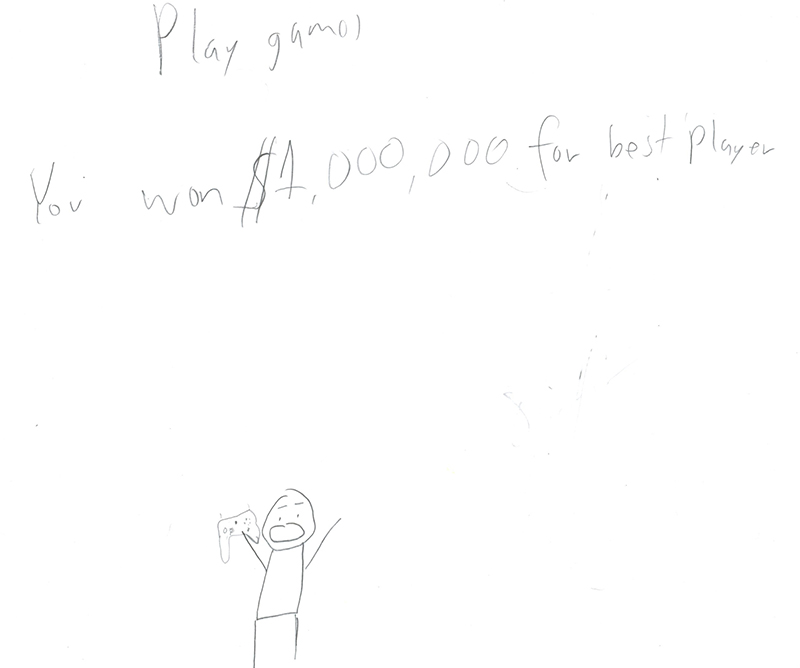 Play games
You won $1,000,000 for best player